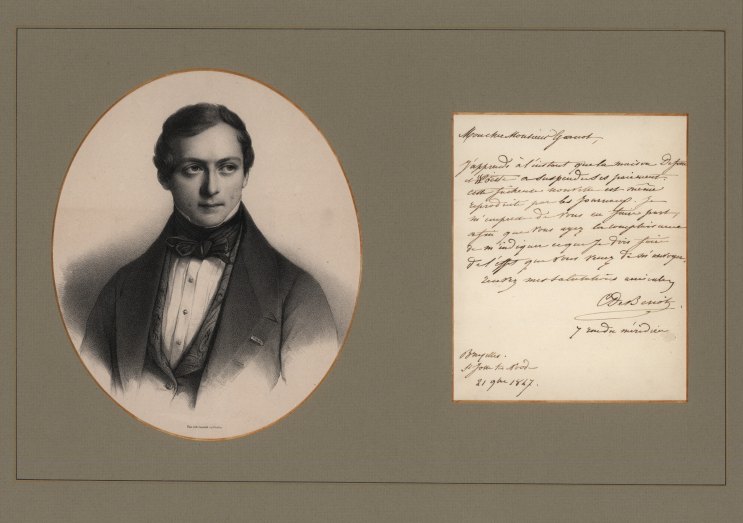 Mon cher Monsieur
J'apprends à l'instant que la maison
et a suspendu ses paiements,
cette fâcheuse nouvelle est même
reproduite par les Journaux. Je
m'empresse de vous en faire part
afin que vous ayez la complaisance
de m'indiquer ce que je dois faire
de l'effet que vous venez de m'envoyer.
Recevez mes salutations amicales
C De Beriot
7 rue du méridien
Bruxelles.
St Josse ten Noode
21 9bre 1847.